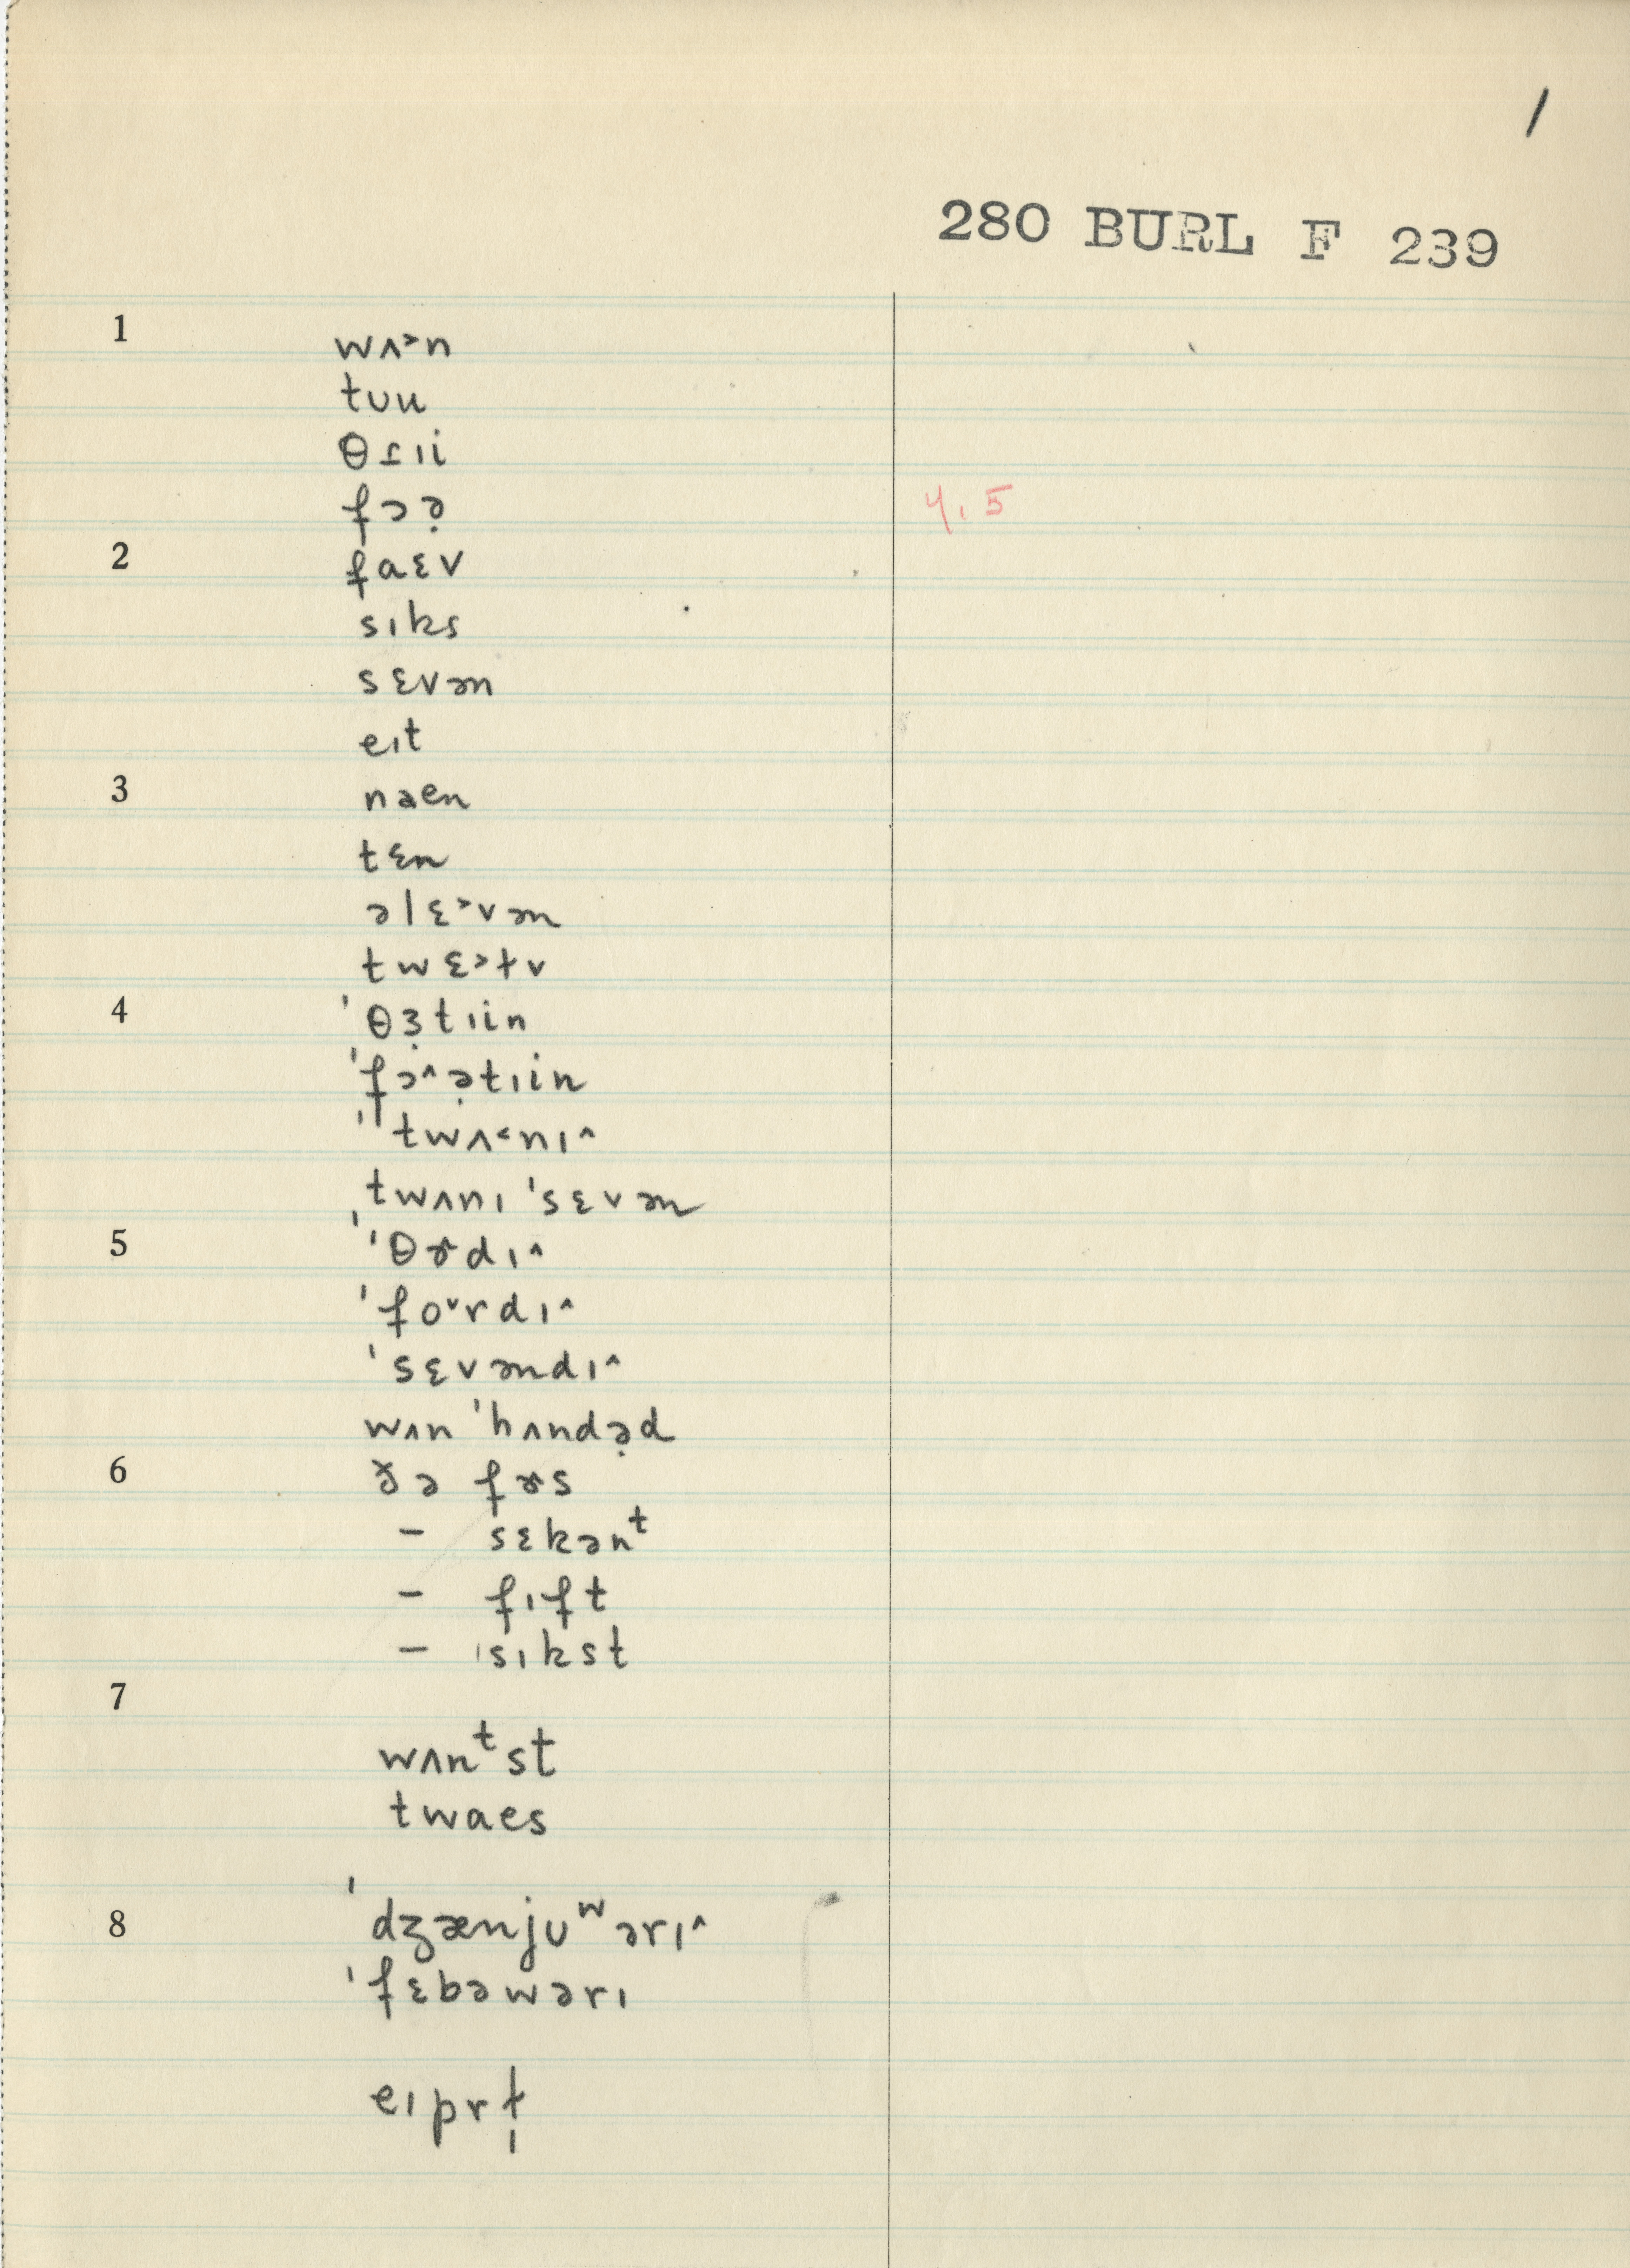 1
280 BURL F 239
1 wʌ˃n
tᴜu
θɾɪi
fɔə̣ 4,5
2 faɛv
sɪks
sɛvən
eɪt
3 naen
tɛn
əlɛ˃vən
twɛ˃ɫv
4 ˈθɜ̣tɪin
ˈfɔ^ə̣tɪin
ˈtwʌ˂nɪ^
ˌtwʌnɪ ˈsɛvən
5 ˈθɚdɪ^
ˈfo˅rdɪ^
ˈsɛvəndɪ^
wʌn ˈhʌndə̣d
6 ðə fɚs
– sɛkənᵗ
– fɪft
– sɪkst
7
wʌnᵗst
twaes
8 ˈdʒænjᴜʷərɪ^
ˈfɛbəwərɪ
eɪprɫ̩